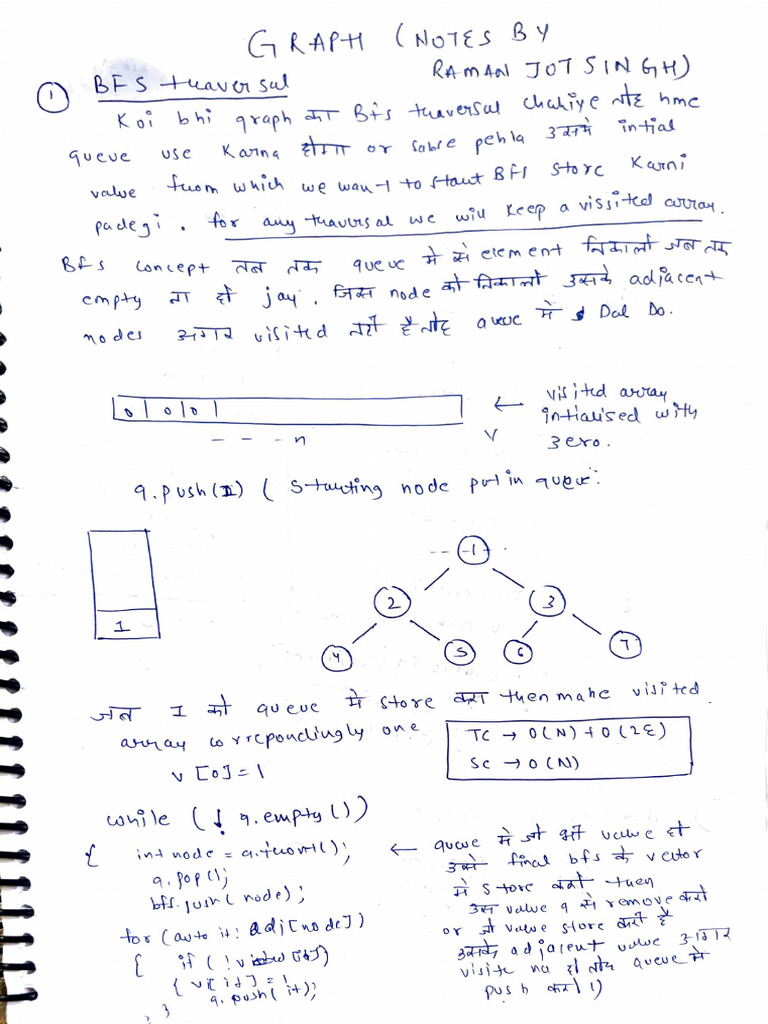 GRAPH (NOTES BY
RAMAN JOT SINGH)
① BFS traversal
Koi bhi graph का Bfs traversal chahiye तोह hme
queue use Karna होगा or sabse pehla उसमे intial
value from which we want to start BFS store Karni
padegi. for any traversal we will keep a vissited array.
Bfs concept तब तक queue मे से element निकालो जब तक
empty ना हो jay. जिस node को निकालो उसके adjacent
nodes अगर visited नही है तोह queue मे Dal Do.
0 | 0 | 0 |
← visited array
intialised with
zero.
- - - - n
V
q.push(1) ( Starting node put in queue.
1
1
2 3
4 5 6 7
जब 1 को queue मे store करा then make visited
array correpondingly one
V[0]=1
TC → O(N) + O(2E)
SC → O(N)
while (! q.empty())
{ int node = q.front();
q.pop();
bfs.push(node);
for (auto it: adj[node])
{ if (!
{ v[it]=1
q.push(it);
} }
← queue मे जो भी value हो
उसे final bfs के vector
मे store करो then
उस value q से remove करो
or जो value store करी है
उसके adjacent value अगर
visite na हो तोह queue मे
push करो।)